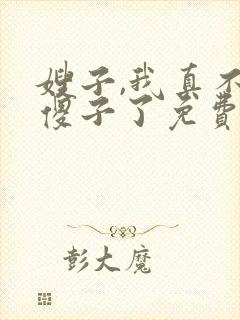 嫂子,我真不
傻子了免费
彭大魔